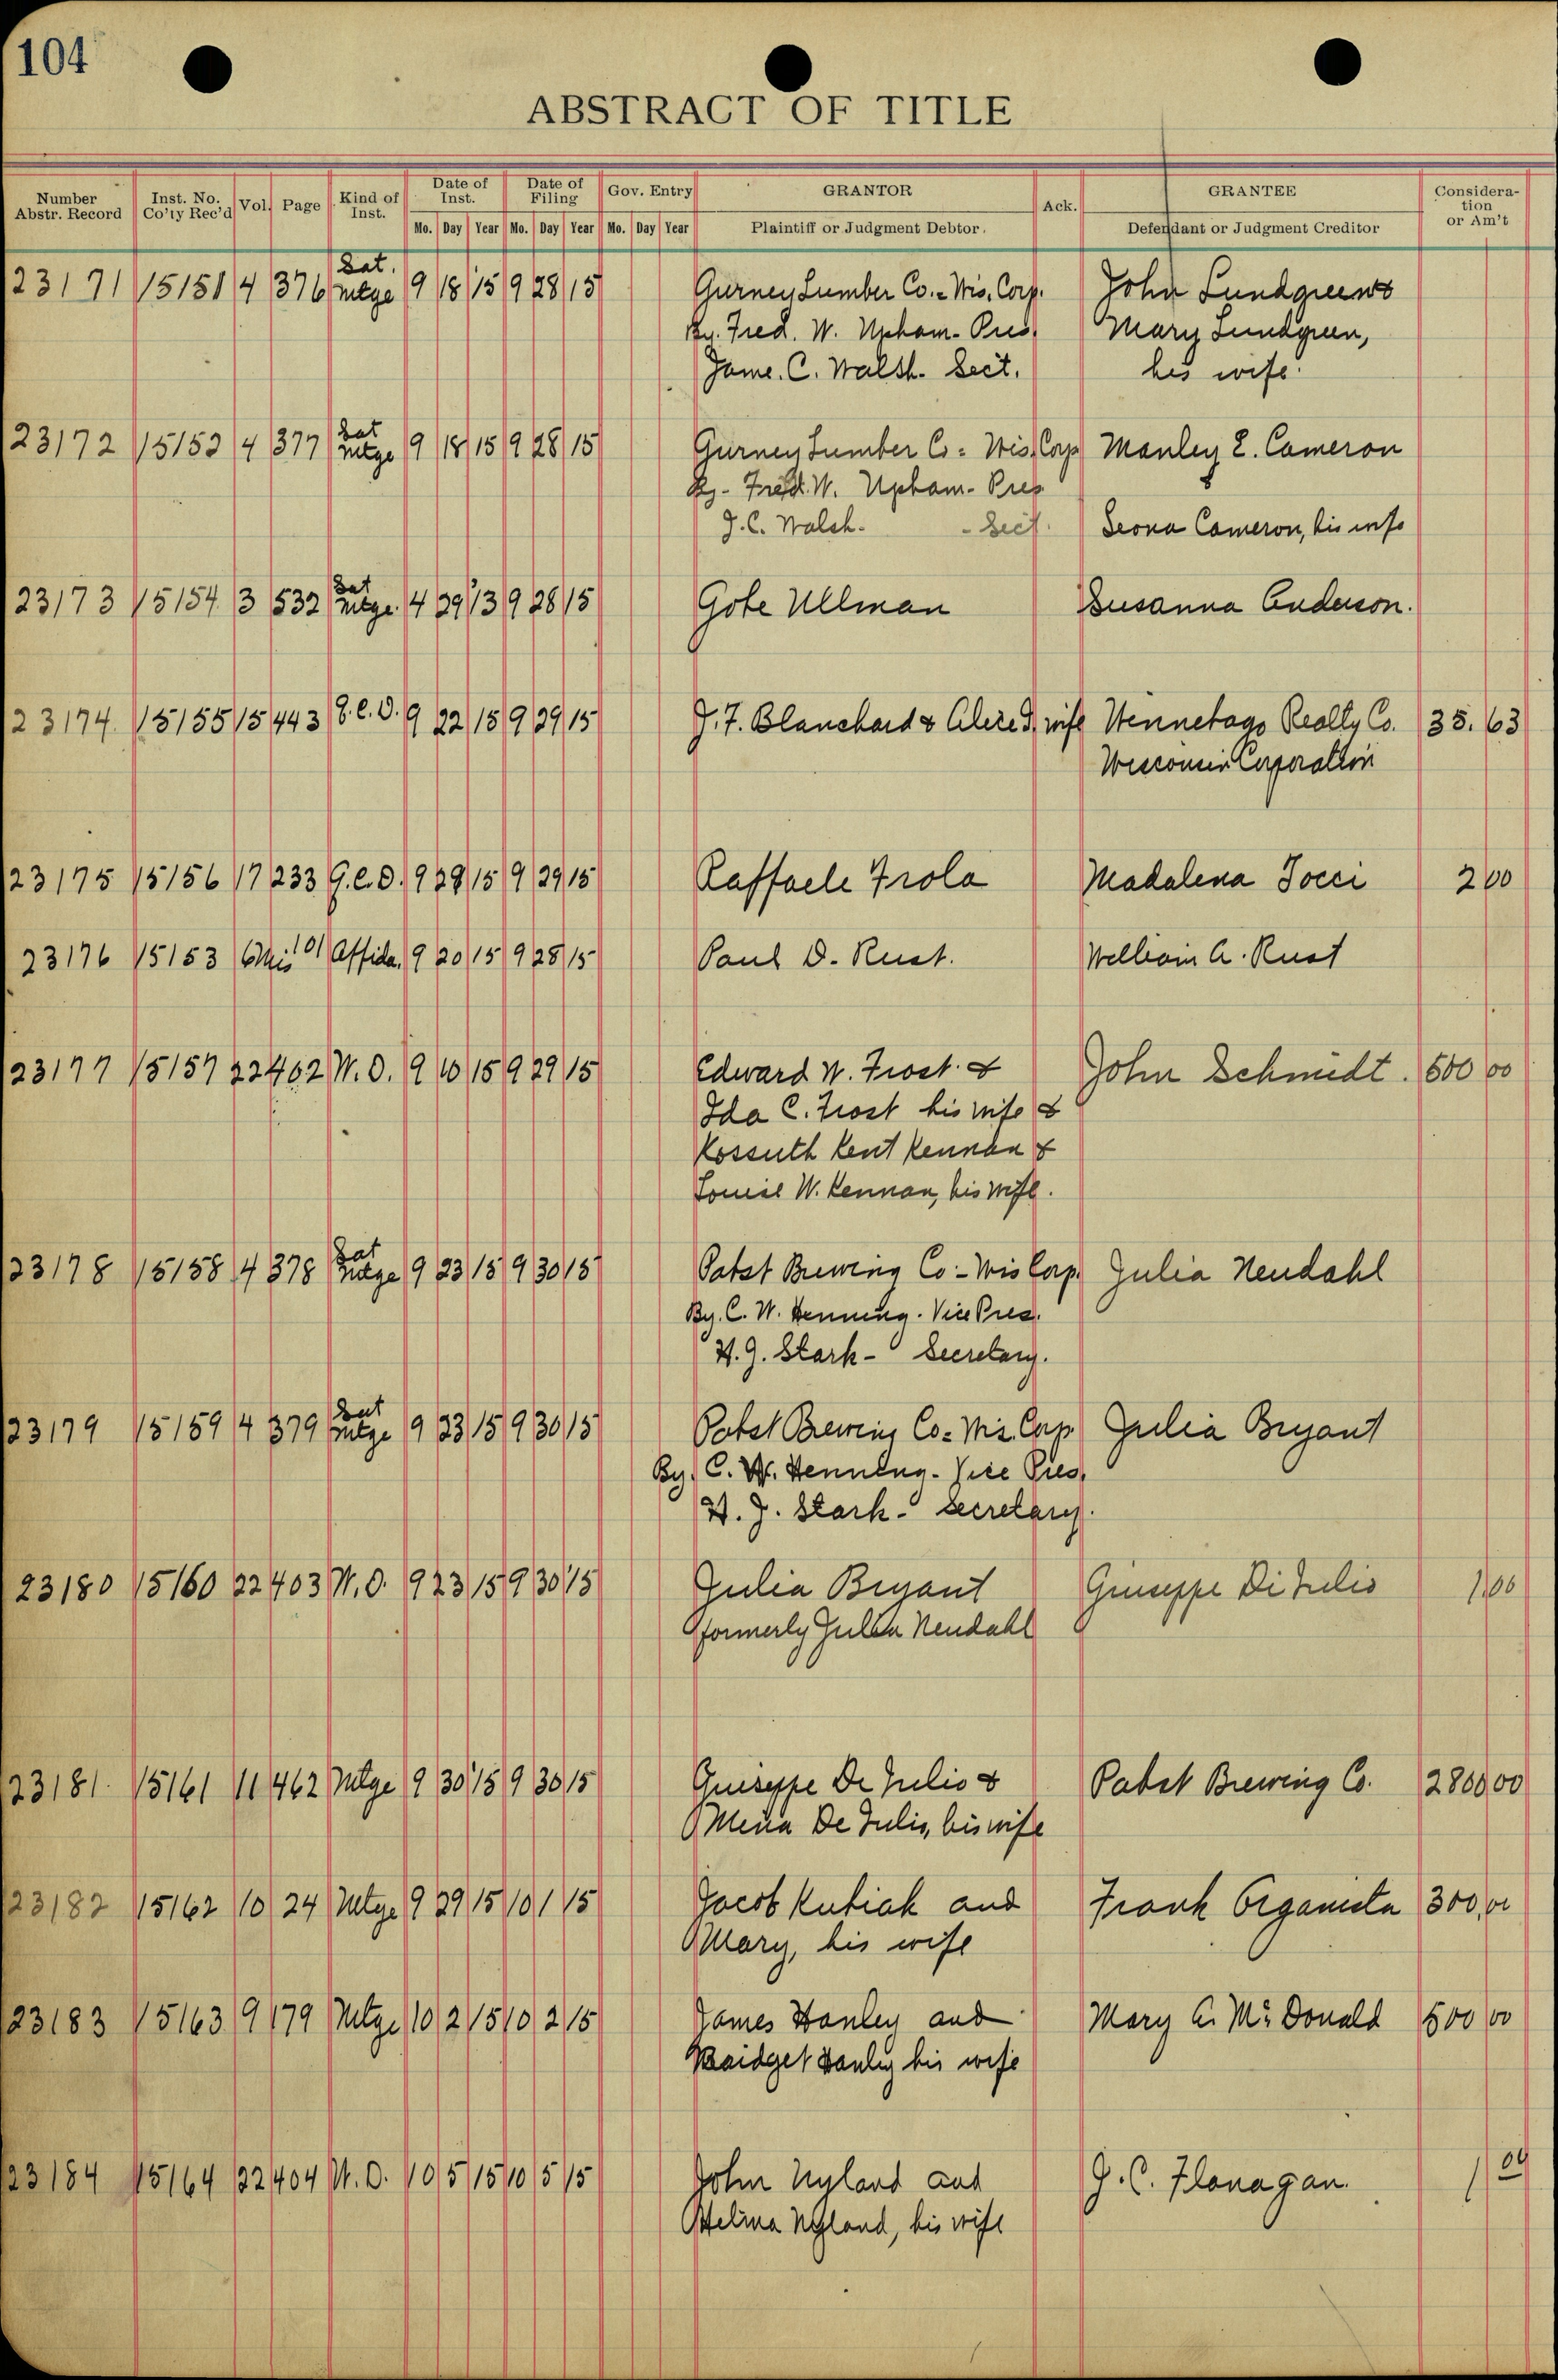 104
ABSTRACT OF TITLE
Number Abstr. Record Inst. No. Co'ty Rec'd Vol. Page Kind of Inst. Date of Inst. Date of Filing Gov. Entry GRANTOR Ack. GRANTEE Consideration or Am't
Mo. Day Year Mo. Day Year Mo. Day Year Plaintiff or Judgment Debtor. Defendant or Judgment Creditor
23171 15151 4 376 Sat. Mtge 9 18 15 9 28 15 Gurney Lumber Co. - Wis. Corp. John Lundgreen &
By. Fred. W. Upham - Pres. Mary Lundgreen,
Jame. C. Walsh. Sect. his wife.
23172 15152 4 377 Sat Mtge 9 18 15 9 28 15 Gurney Lumber Co = Wis. Corp Manley E. Cameron
By - Fred. W. Upham - Pres
J. C. Walsh. - Sect. Leona Cameron, his wife
23173 15154 3 532 Sat Mtge. 4 29 13 9 28 15 Gote Ullman Susanna Anderson.
23174. 15155 15 443 Q.C.D. 9 22 15 9 29 15 J. F. Blanchard & wife Realty Co. 35.63
Wisconsin Corporation
23175 15156 17 233 Q.C.D. 9 29 15 9 29 15 Raffaele Frola Madalena Tocci 2 00
23176 15153 6 Mis 101 Affida. 9 20 15 9 28 15 Paul D. Rust. William A. Rust
23177 15157 22 402 W.D. 9 10 15 9 29 15 Edward W. Frost. & John Schmidt. 500 00
Ida C. Frost his wife &
Kossuth Kent Kennan &
Louise W. Kennan, his wife.
23178 15158 4 378 Sat Mtge 9 23 15 9 30 15 Pabst Brewing Co - Wis Corp. Julia Nendahl
By. C. W. Henning. Vice Pres.
H. J. Stark - Secretary.
23179 15159 4 379 Sat Mtge 9 23 15 9 30 15 Pabst Brewing Co = Wis. Corp. Julia Bryant
By. C. W. Henning - Vice Pres,
H. J. Stark - Secretary.
23180 15160 22 403 W.D. 9 23 15 9 30 15 Julia Bryant Giuseppe Di Julio 1 00
formerly Julia Nendahl
23181. 15161 11 462 Mtge 9 30 15 9 30 15 Guiseppe De Julio & Pabst Brewing Co. 2800 00
Mena De Julio, his wife
23182 15162 10 24 Mtge 9 29 15 10 1 15 Jacob Kubiak and Frank Organista 300.00
Mary, his wife
23183 15163 9 179 Mtge 10 2 15 10 2 15 James Hanley and Mary A. McDonald 500 00
Bridget Hanley his wife
23184 15164 22 404 W.D. 10 5 15 10 5 15 John Nyland and J. C. Flanagan. 1 00
Helina Nyland, his wife